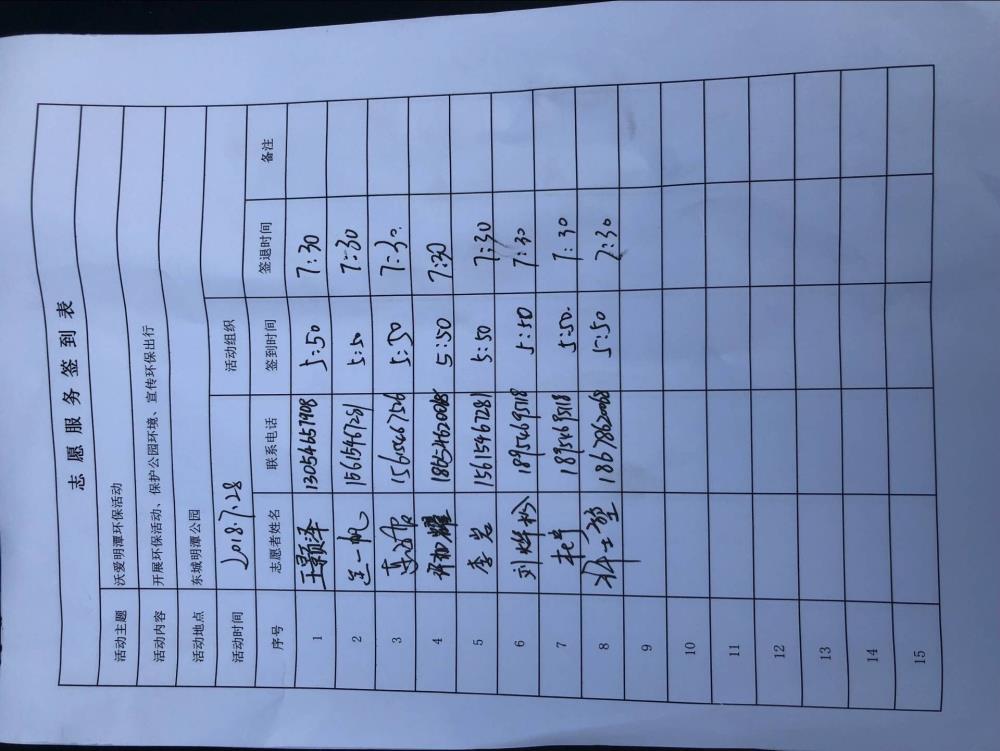 志愿服务签到表
活动主题 沃爱明潭环保活动
活动内容 开展环保活动、保护公园环境、宣传环保出行
活动地点 东城明潭公园
活动时间 2018.7.28 活动组织
序号 志愿者姓名 联系电话 签到时间 签退时间 备注
1 王颢泽 13054657908 5:50 7:30
2 一帆 15615467281 5:50 7:30
3 5:50 7:30
4 5:50 7:30
5 李岩 15615467281 5:50 7:30
6 刘烨松 18954693518 5:50 7:30
7 5:50 7:30
8 18678620068 5:50 7:30
9
10
11
12
13
14
15